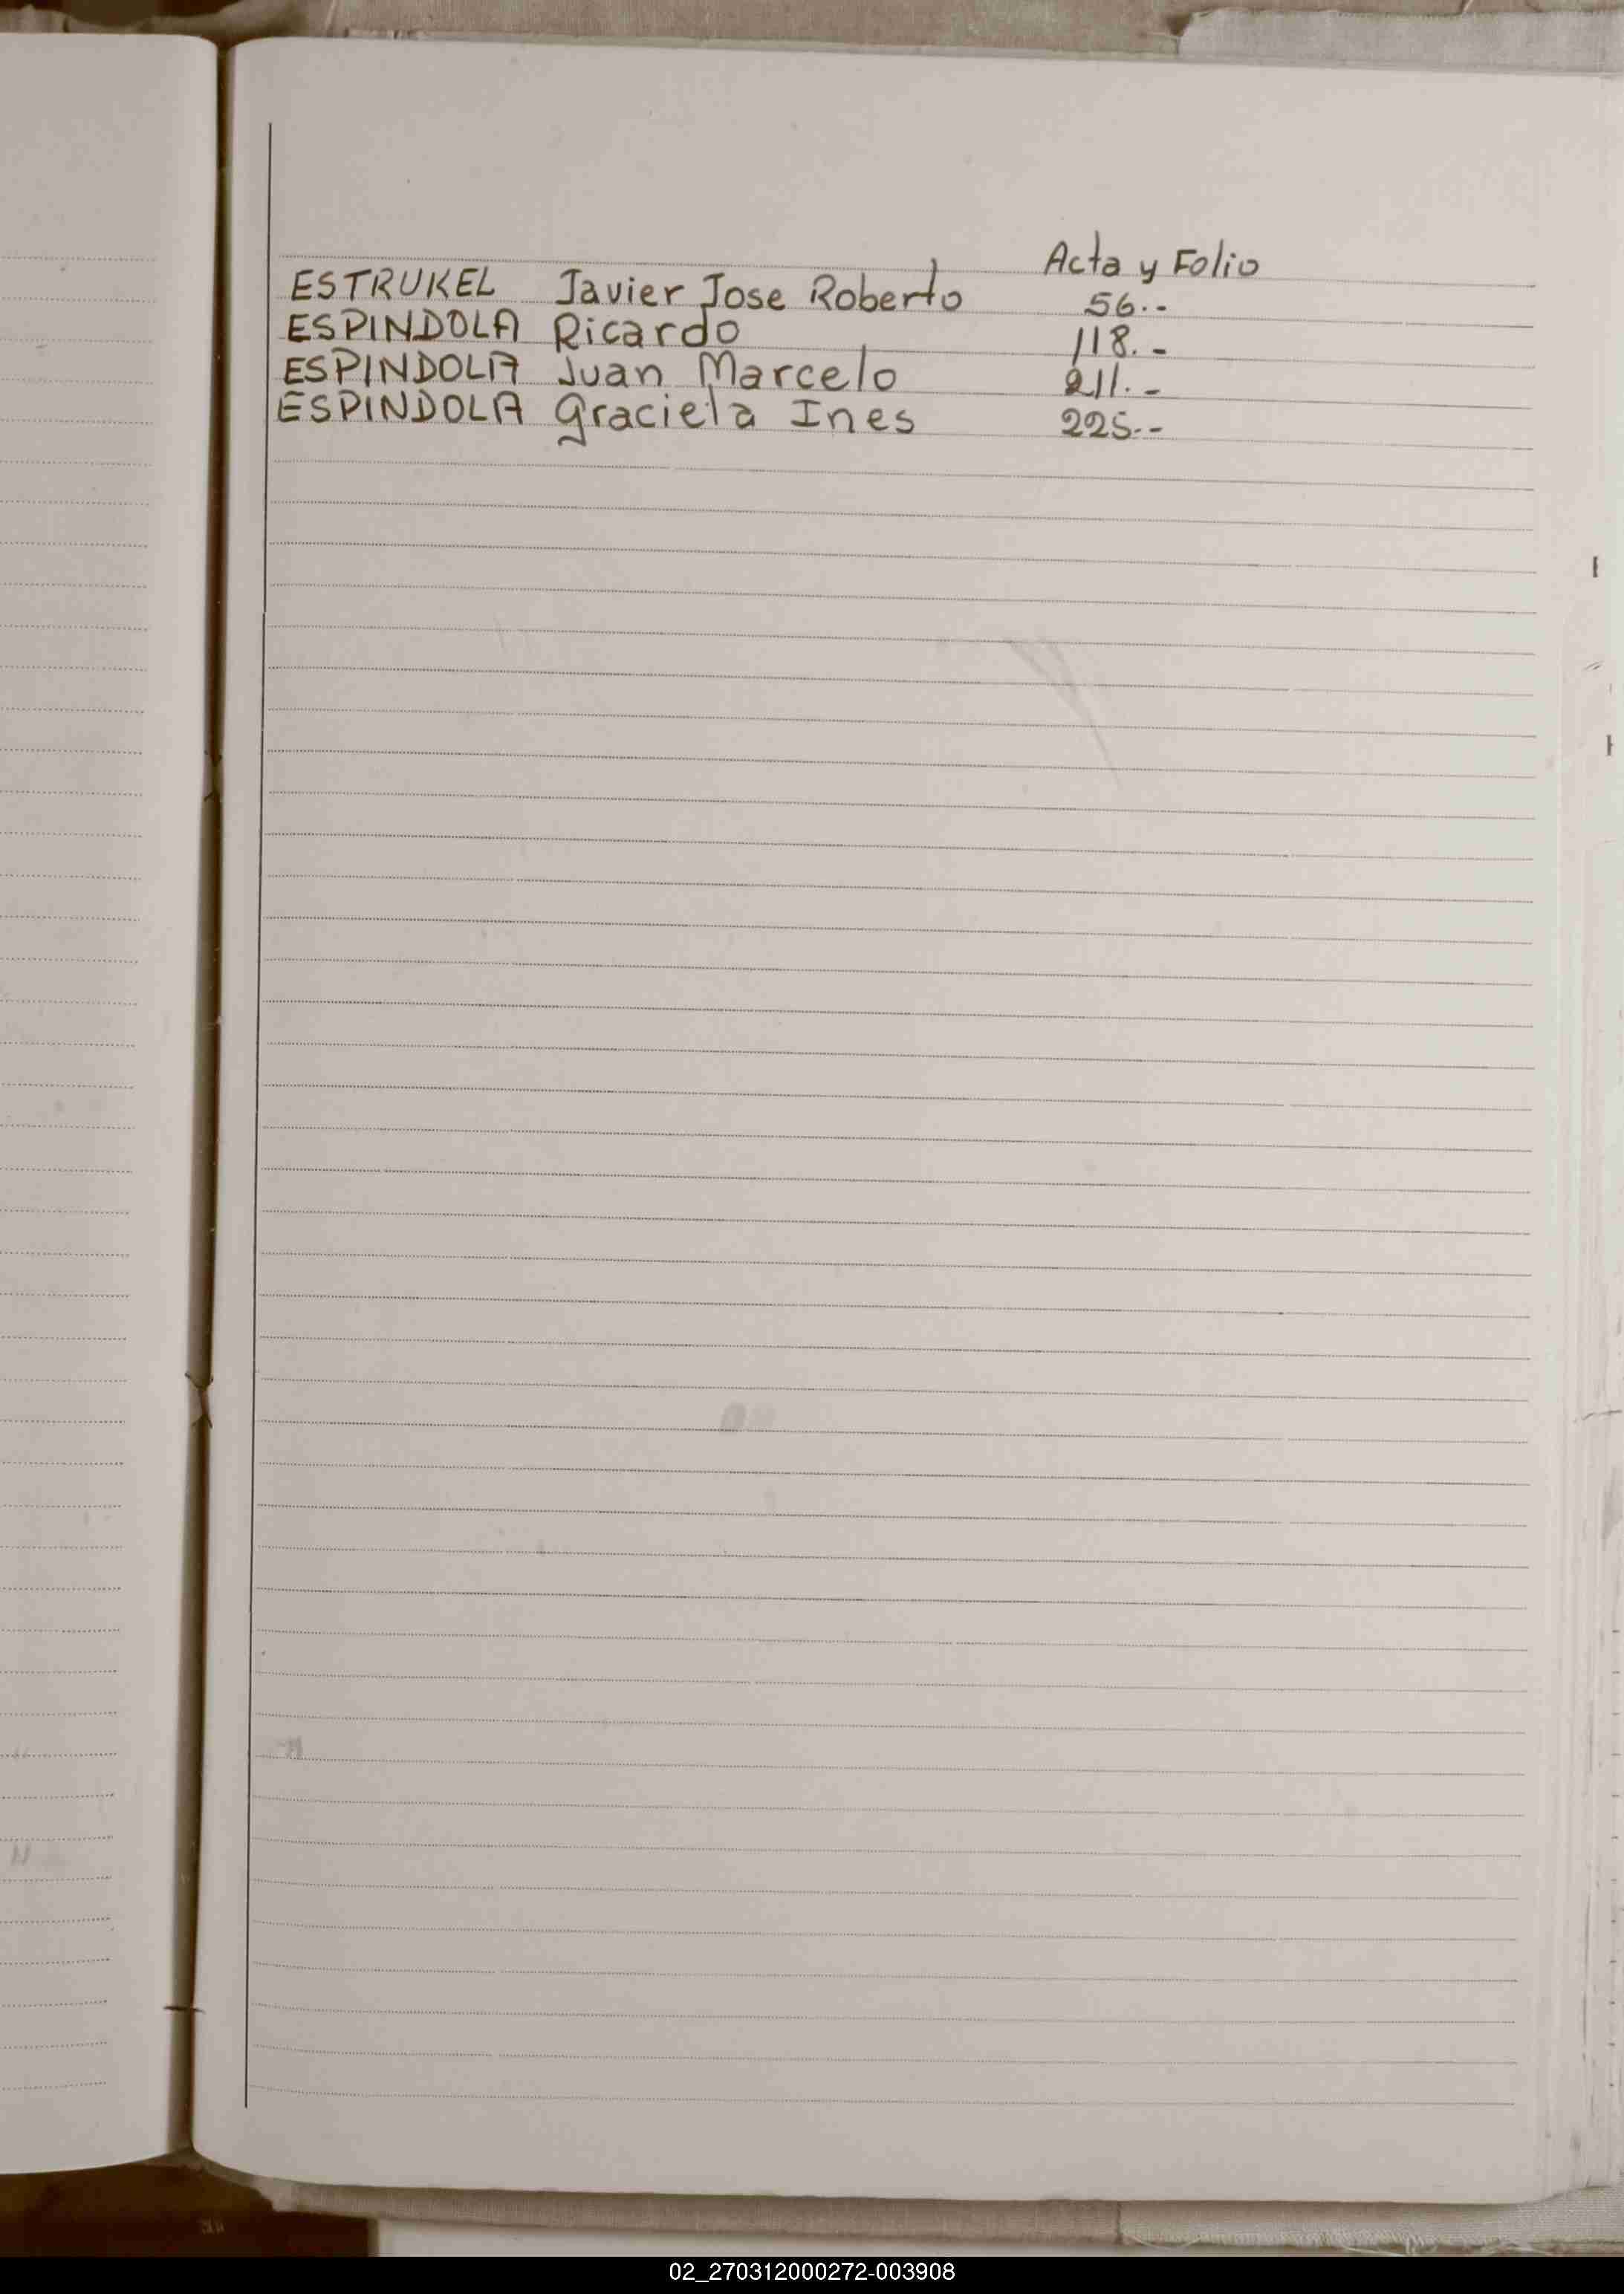 Acta y Folio
ESTRUKEL Javier Jose Roberto 56.--
ESPINDOLA Ricardo 118.-
ESPINDOLA Juan Marcelo 211.-
ESPINDOLA Graciela Ines 225.--
02_270312000272-003908